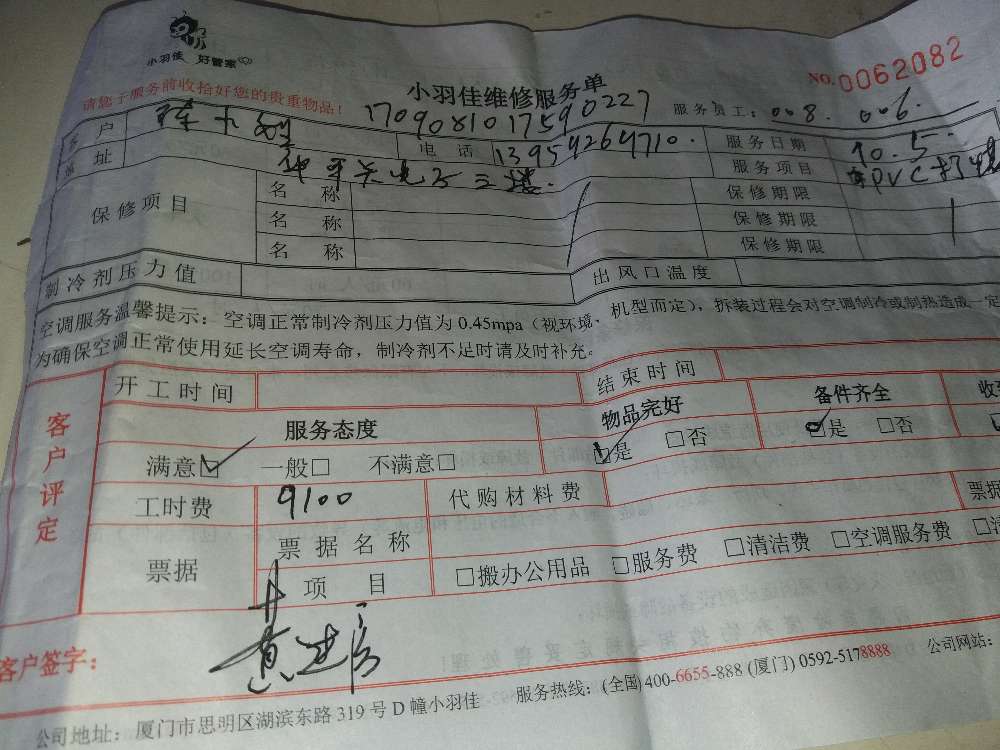 小羽佳 好管家
NO.0062082
小羽佳维修服务单
请您于服务前收拾好您的贵重物品!
1709081017590227
服务员工: 008. 006.
客户
电话 13959264710.
服务日期 10.5.
地址
服务项目 PVC
保修项目
名称 保修期限
名称 保修期限
名称 保修期限
制冷剂压力值 出风口温度
空调服务温馨提示: 空调正常制冷剂压力值为 0.45mpa (视环境、机型而定), 拆装过程会对空调制冷或制热造成一定
为确保空调正常使用延长空调寿命, 制冷剂不足时请及时补充。
客户评定
开工时间 结束时间
服务态度 物品完好 备件齐全 收
满意☑ 一般□ 不满意□ ☑是 □否 ☑是 □否
工时费 9100 代购材料费
票据
票据 票据名称
项目 □搬办公用品 □服务费 □清洁费 □空调服务费
客户签字:
公司地址: 厦门市思明区湖滨东路 319 号 D 幢小羽佳 服务热线: (全国) 400-6655-888 (厦门) 0592-5178888 公司网站: